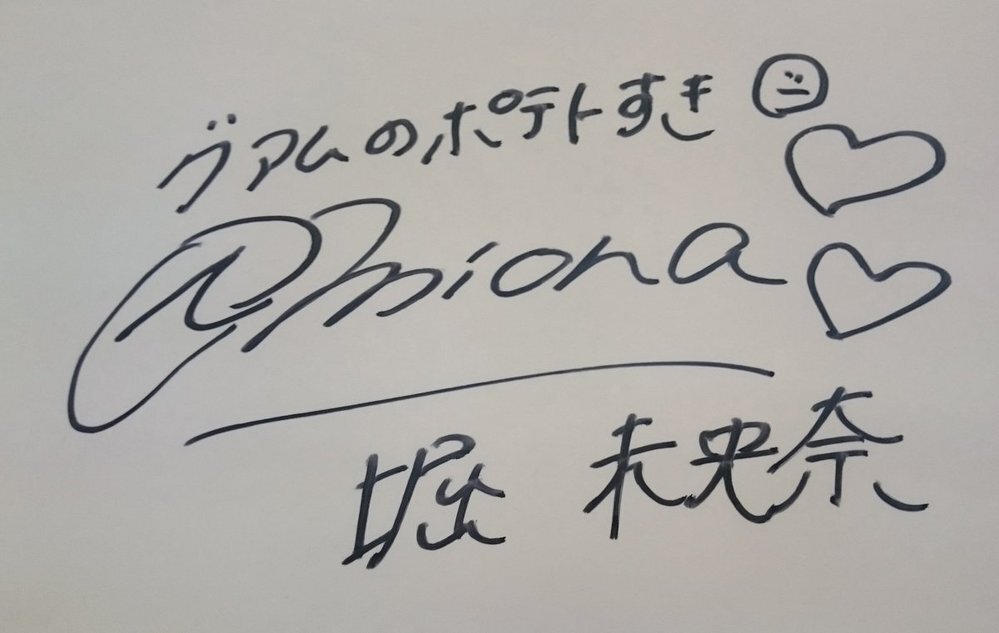 ヴアムのポテトすき
@miona
堀 未央奈